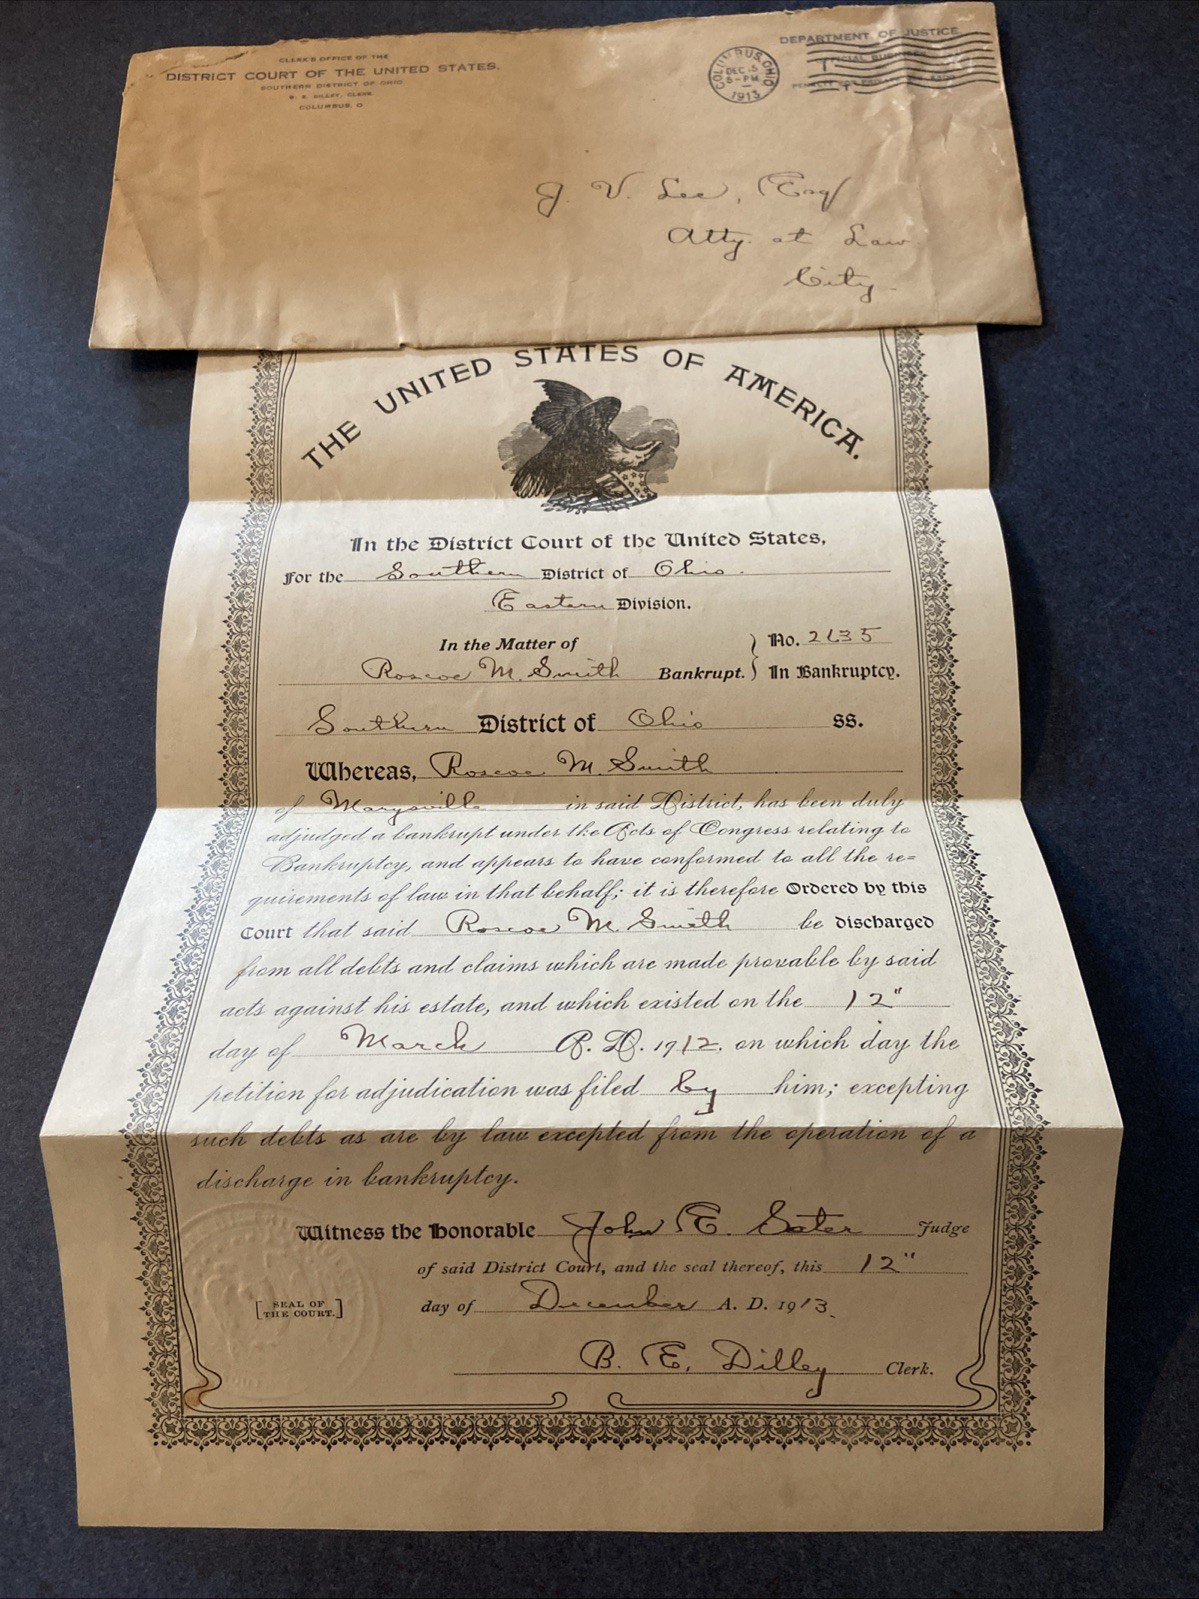 CLERK'S OFFICE OF THE
DISTRICT COURT OF THE UNITED STATES.
SOUTHERN DISTRICT OF OHIO
B. E. DILLEY, CLERK
COLUMBUS, O
DEPARTMENT OF JUSTICE.
OFFICIAL BUSINESS
COLUMBUS, OHIO
DEC 5
5-PM
1913
J. V. Lee, Esq
Atty. at Law
City.
THE UNITED STATES OF AMERICA.
In the District Court of the United States,
For the Southern District of Ohio.
Eastern Division.
In the Matter of } No. 2635
Roscoe M. Smith Bankrupt. } In Bankruptcy.
Southern District of Ohio ss.
Whereas, Roscoe M. Smith
of Marysville in said District, has been duly
adjudged a bankrupt under the Acts of Congress relating to
Bankruptcy, and appears to have conformed to all the re=
quirements of law in that behalf; it is therefore Ordered by this
Court that said Roscoe M. Smith be discharged
from all debts and claims which are made provable by said
acts against his estate, and which existed on the 12"
day of March A. D. 1912, on which day the
petition for adjudication was filed by him; excepting
such debts as are by law excepted from the operation of a
discharge in bankruptcy.
Witness the Honorable John E. Sater Judge
of said District Court, and the seal thereof, this 12"
[SEAL OF THE COURT.] day of December A. D. 1913.
B. E. Dilley Clerk.